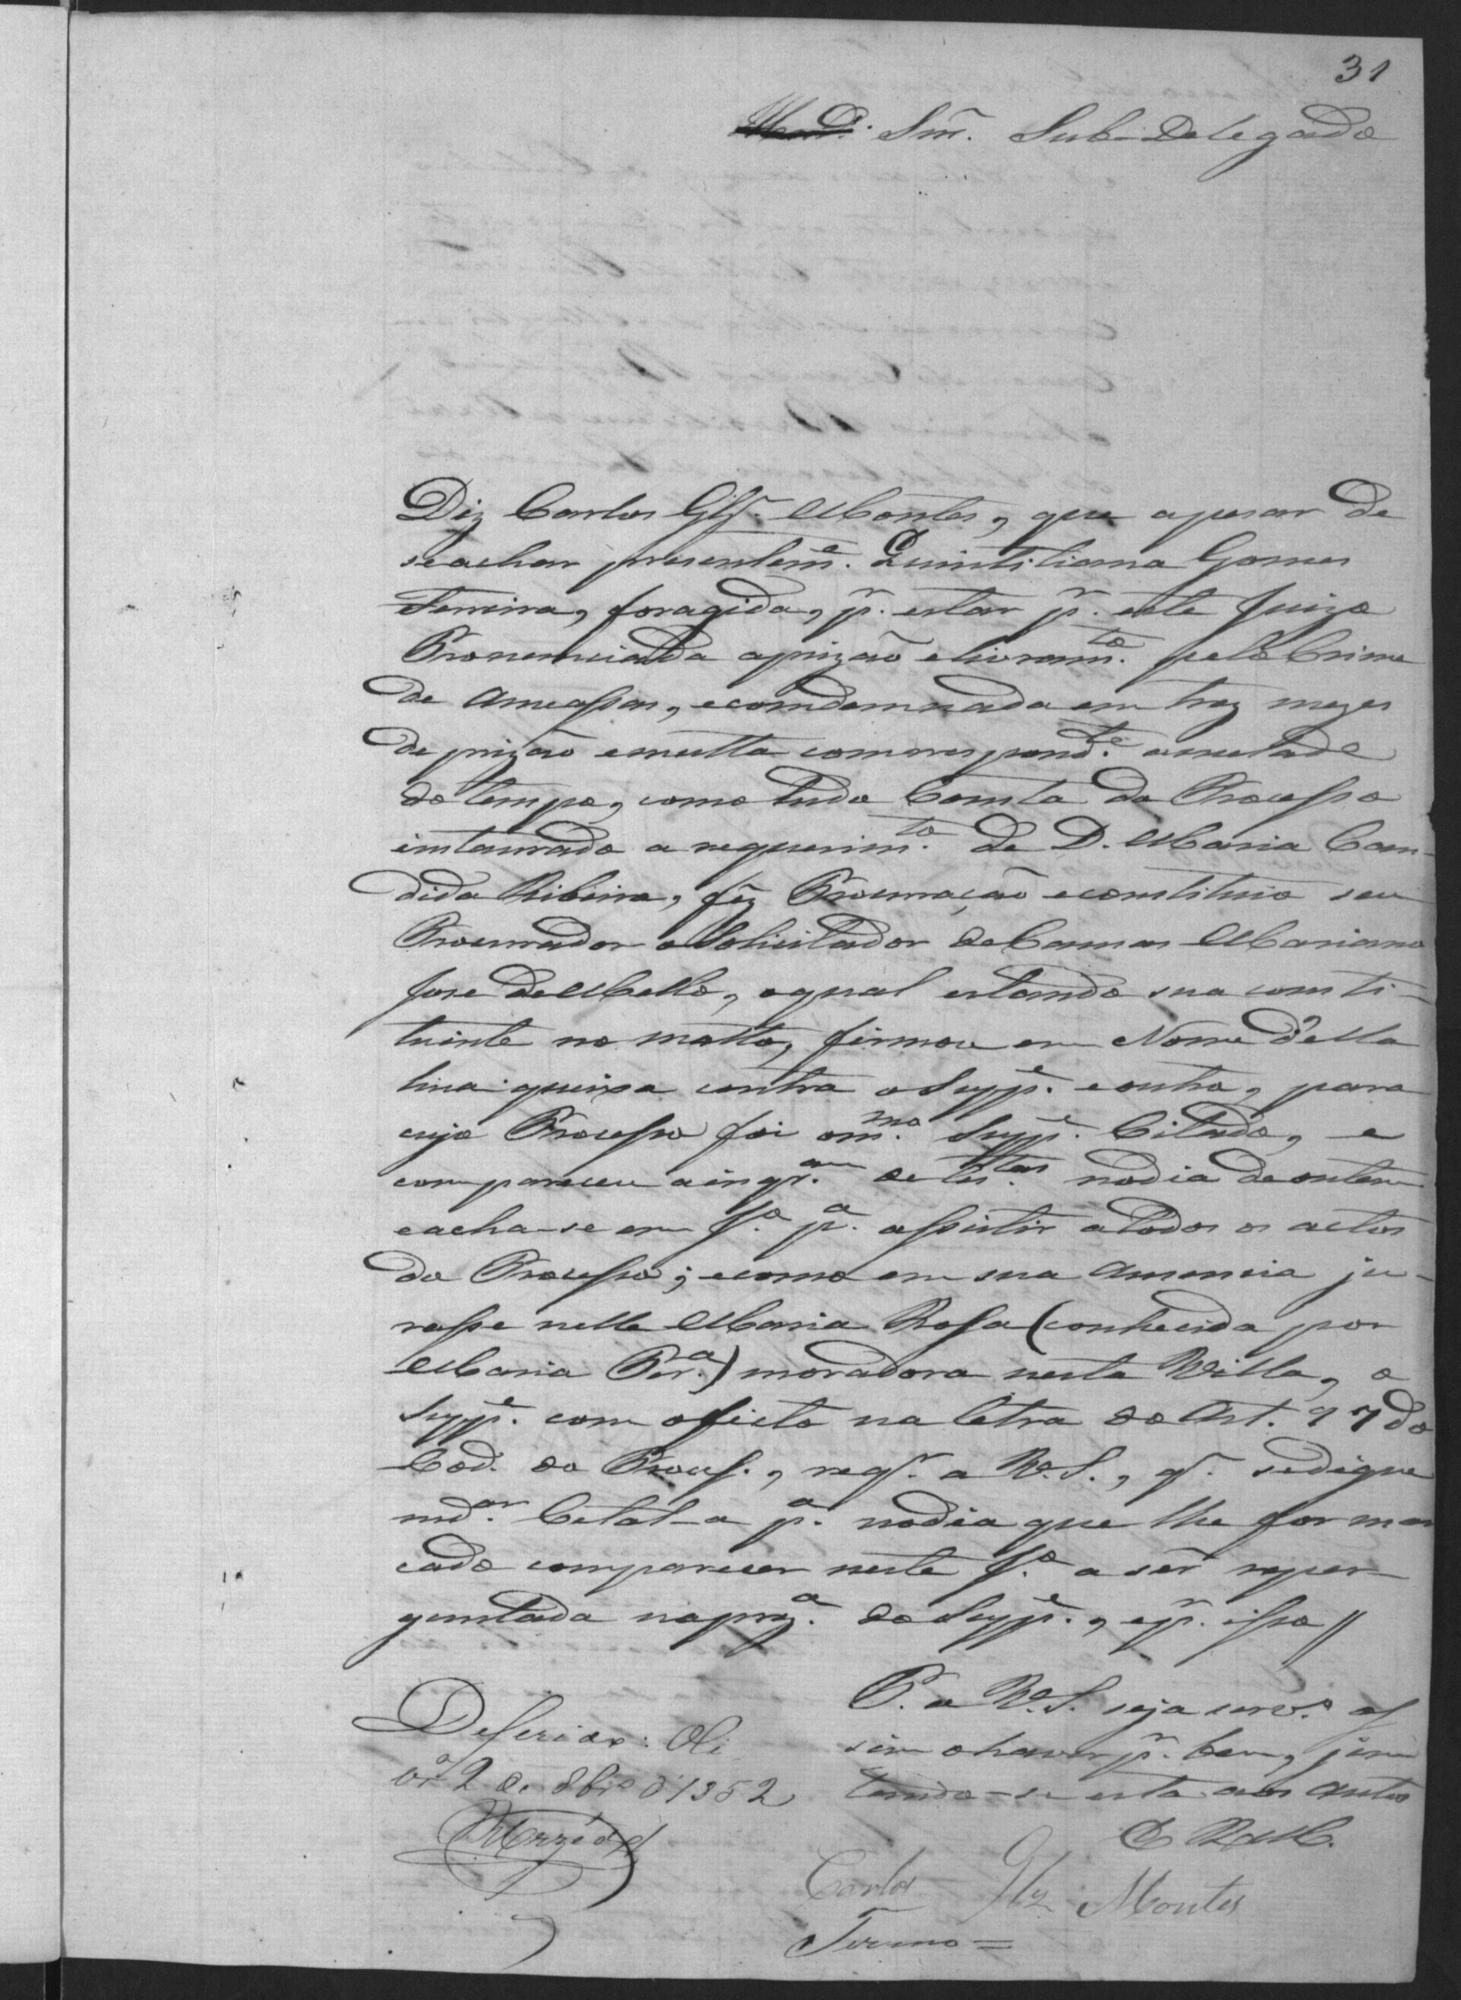 31
Snr. Sub-Delegado
Diz Carlos Glz. Montes, que apesar de
se achar presentem.e Quintiliana Gomes
Ferreira, foragida, p.r estar p.r este Juizo
Pronunciada a prizão e livram.to pelo Crime
de Ameassas, e comdemnada em trez mezes
de prizão e multa comrespond.te a metade
do tempo, como tudo Comsta do Processo
imtaurado a requerim.to de D. Maria Cam-
dida Ribeira, fêz Procuração e comstituio seu
Procurador o Solicitador de Causas Mariano
Jose de Mello, o qual estando sua comsti-
tuinte no matto, firmou em Nome della
huá queixa contra o Supp.e e outro, para
cujo Processo foi o m.mo Supp.e Citado, e
compareceu a inqr.am de tes.tas no dia de ontem
e acha-se em J.o p.a assistir a todos os actos
do Processo; e como em sua Ausencia ju-
rasse nelle Maria Rosa (conhecida por
Maria Per.a) moradora nesta Villa, o
Supp.e com o ficto na letra do Art. do
Cod. do Process., reqr. a V.S., q. se digne
md.ar Cital-a p.a no dia que lhe for mar
cado comparecer neste J.o a sêr reper-
guntada na prez.a do Supp.e, e p.r isso //
P. a V.S. seja serv.o as
sim o haver p.r bem, jun
tando-se esta aos Autos
E. R. M.
Deferido: Oli
vr.a 2 de 8br.o d 1852
Carlos Glz Montes
Termo =